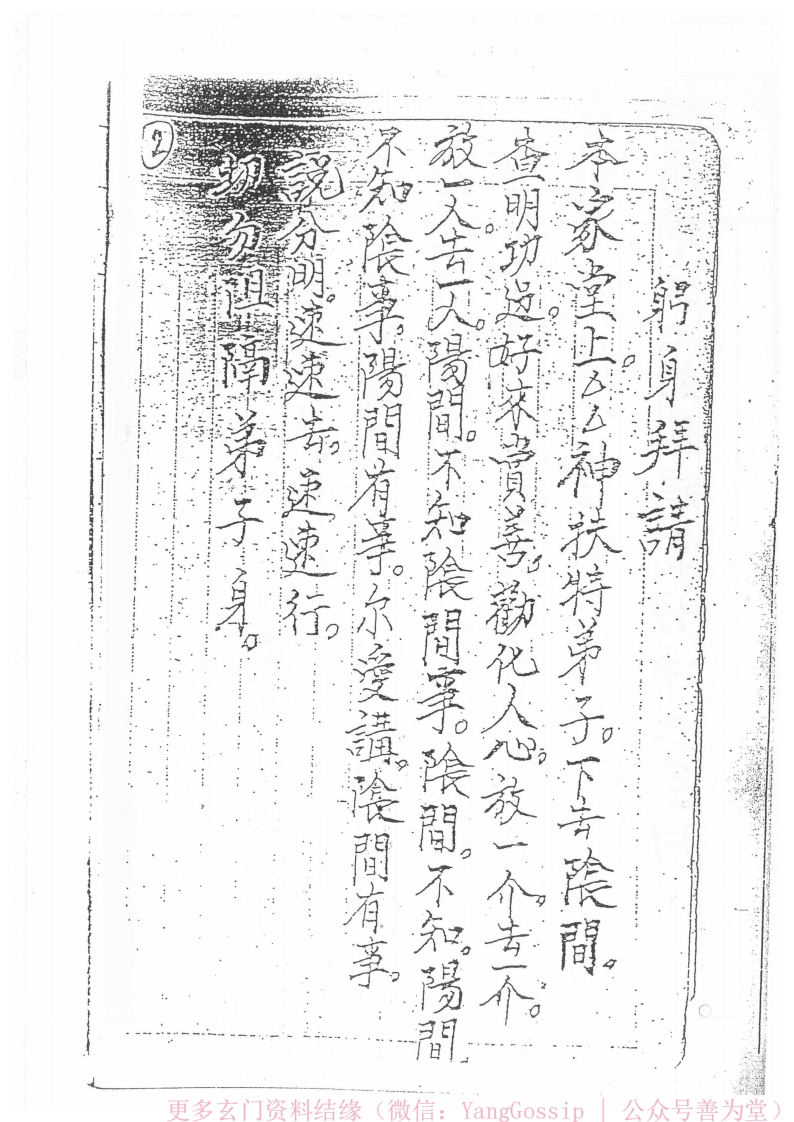 躬身拜請
本家堂上。厶厶神扶特弟子。下去陰間。
查明功過。好來賞善。勸化人心。放一个。去一个。
放一人。去一人。陽間。不知陰間事。陰間。不知。陽間
不知陰事。陽間有事。尔愛講。陰間有事。
說分明。速速去。速速行。
切勿阻隔弟子身。
2
更多玄门资料结缘（微信：YangGossip | 公众号善为堂）